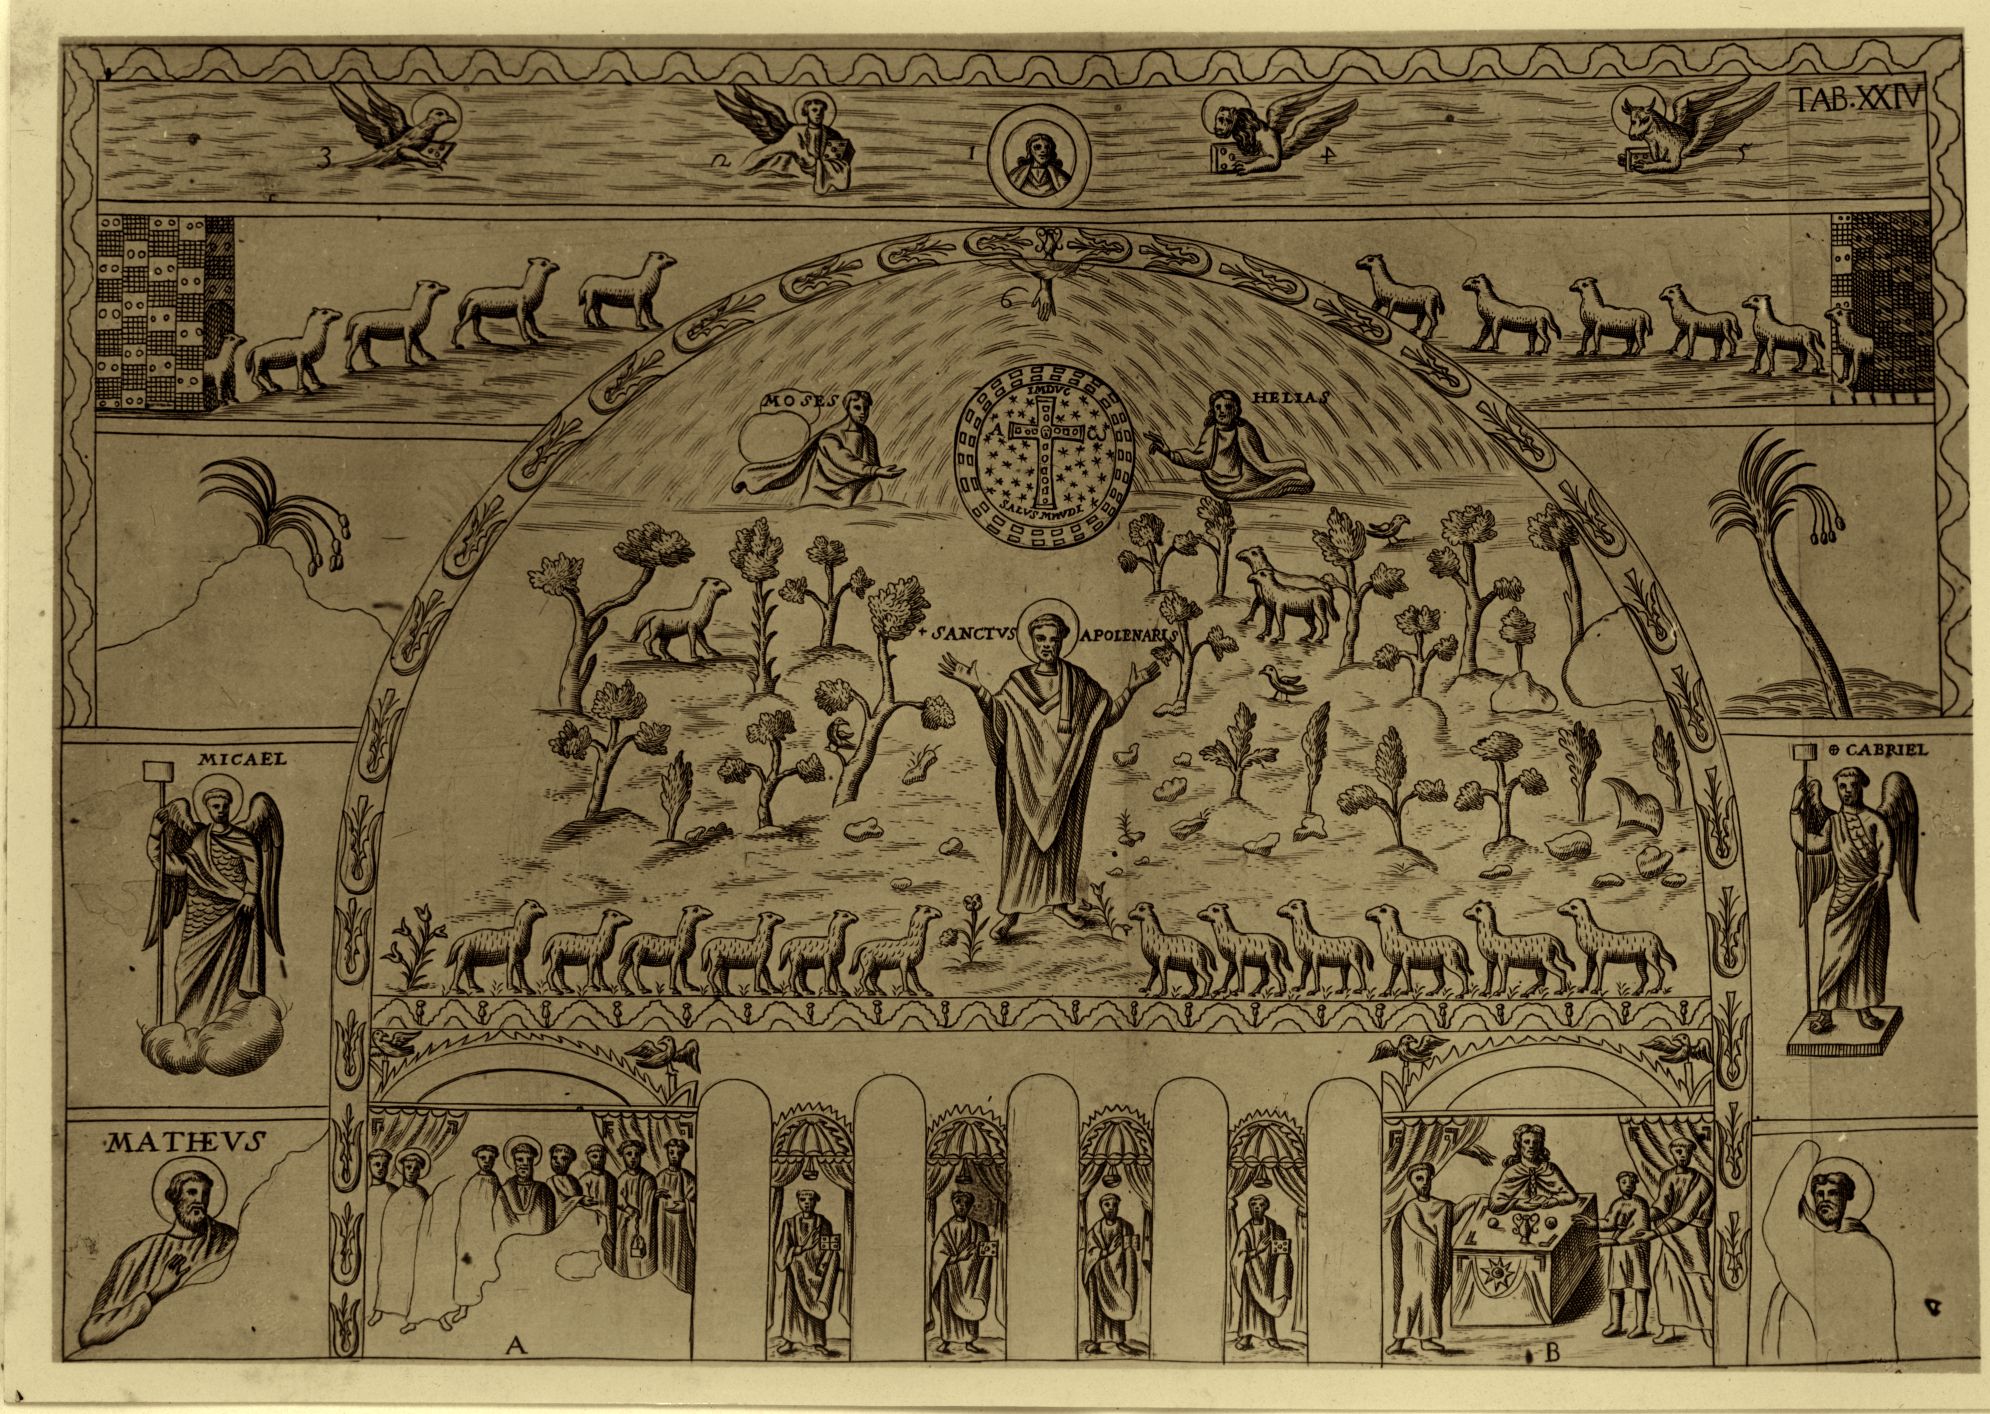 TAB. XXIV
3
2
1
4
5
6
MOSES
HELIAS
IMDVC
A
ω
SALVS MMVDI
+ SANCTVS
APOLENARIS
MICAEL
⊕ GABRIEL
MATHEVS
A
B